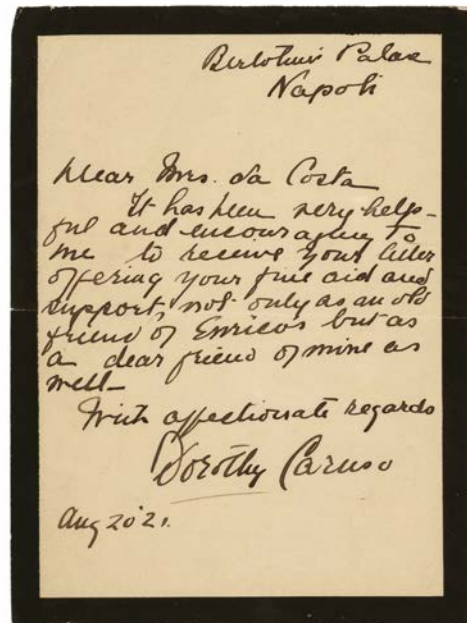 Bertolini Palace
Napoli
Dear Mrs. da Costa
It has been very help-
ful and encouraging to
me to receive your letter
offering your fine aid and
support, not only as an old
friend of Enricos but as
a dear friend of mine as
well—
With affectionate regards
Dorothy Caruso
Aug 20'21.